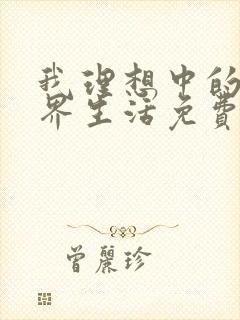 我理想中的
界生活免費
曾麗珍